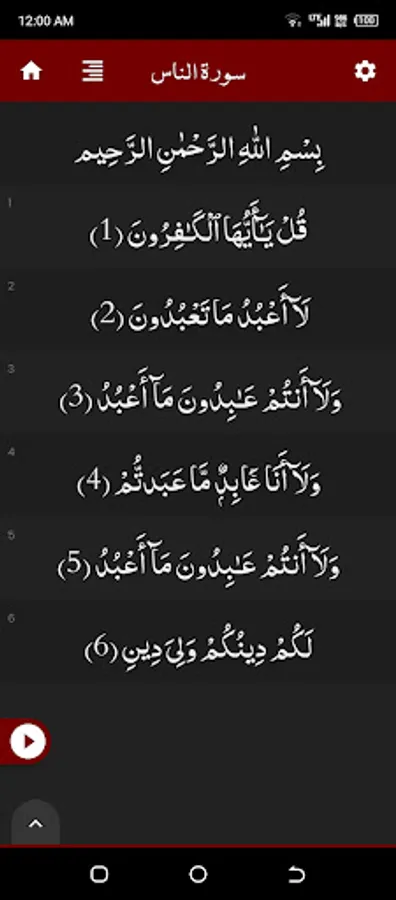 12:00 AM
LTE
100
سورة الناس
بِسْمِ اللهِ الرَّحْمٰنِ الرَّحِيمِ
1
قُلْ يَـٰٓأَيُّهَا ٱلْكَـٰفِرُونَ (1)
2
لَآ أَعْبُدُ مَا تَعْبُدُونَ (2)
3
وَلَآ أَنتُمْ عَـٰبِدُونَ مَآ أَعْبُدُ (3)
4
وَلَآ أَنَا۠ عَابِدٌ مَّا عَبَدتُّمْ (4)
5
وَلَآ أَنتُمْ عَـٰبِدُونَ مَآ أَعْبُدُ (5)
6
لَكُمْ دِينُكُمْ وَلِىَ دِينِ (6)